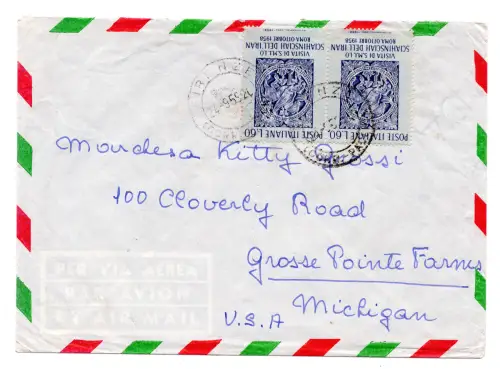 POSTE ITALIANE L.60
VISITA DI S.M.I. LO
SCIAINSCIAH DELL'IRAN
ROMA OTTOBRE 1958
POSTE ITALIANE L.60
VISITA DI S.M.I. LO
SCIAINSCIAH DELL'IRAN
ROMA OTTOBRE 1958
Kitty Grossi
100 Cloverly Road
Grosse Pointe Farms
Michigan
U.S.A
PER VIA AEREA
PAR AVION
BY AIR MAIL